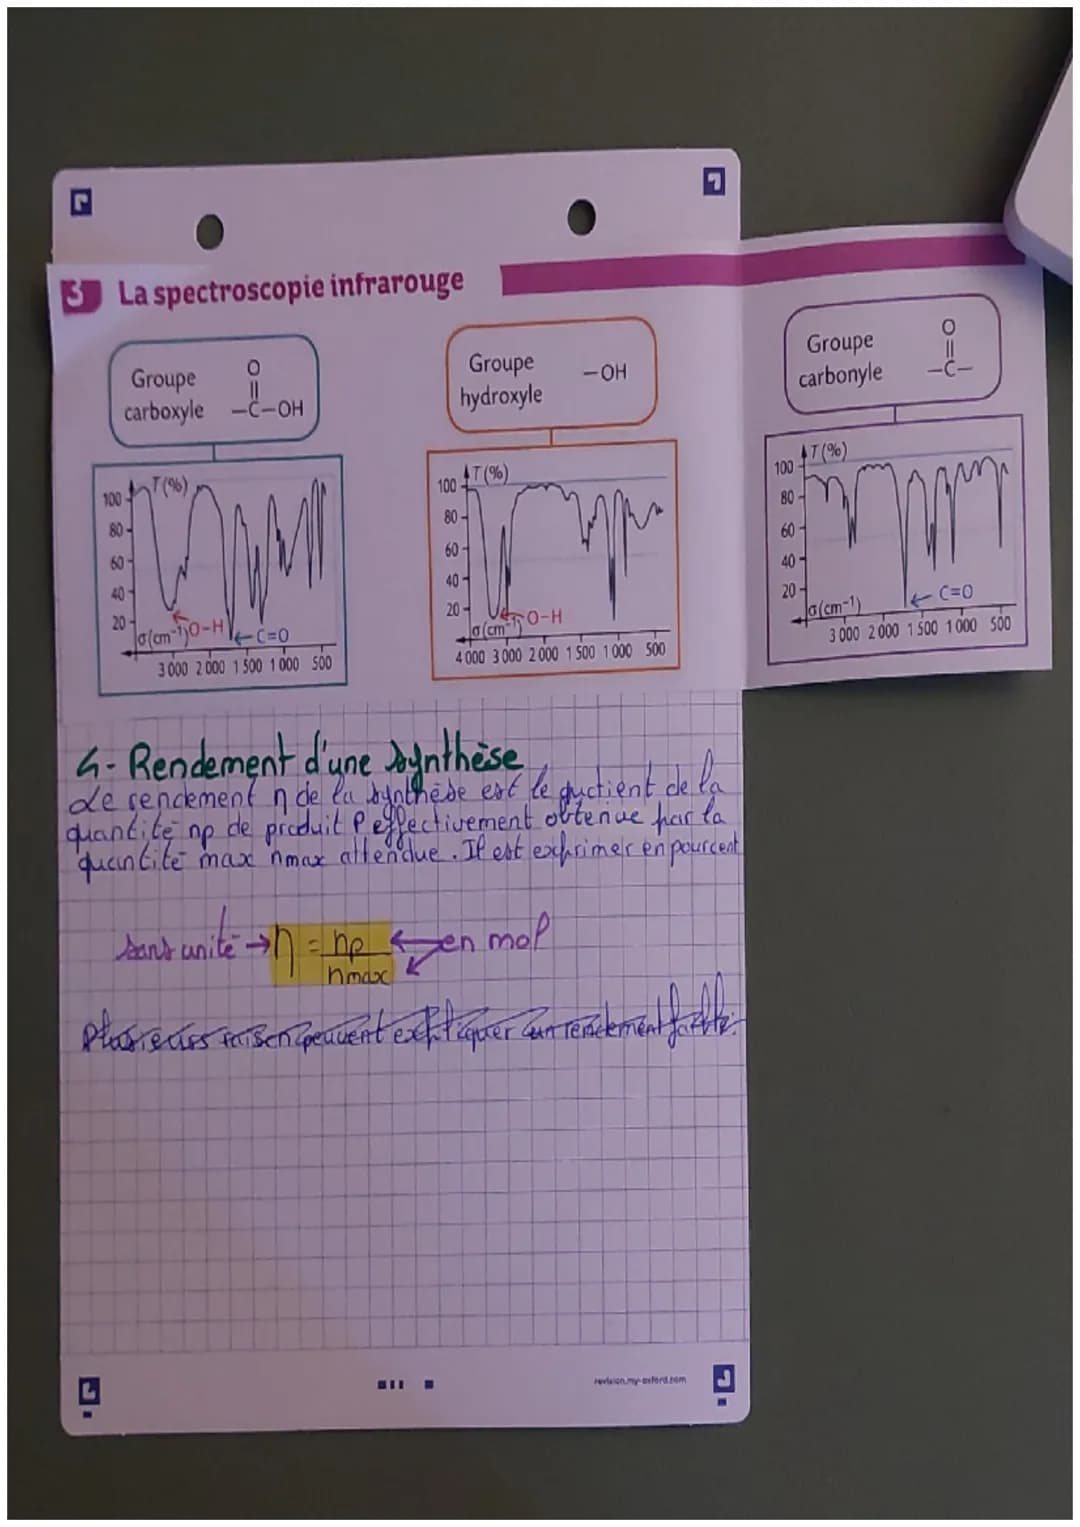 3 La spectroscopie infrarouge
Groupe
carboxyle
O
-C-OH
T(%)
100
80
60
40
20
O-H
C=O
σ(cm⁻¹)
3 000 2 000 1 500 1 000 500
Groupe
hydroxyle
-OH
T(%)
100
80
60
40
20
O-H
σ(cm⁻¹)
4 000 3 000 2 000 1 500 1 000 500
Groupe
carbonyle
O
-C-
T(%)
100
80
60
40
20
C=O
σ(cm⁻¹)
3 000 2 000 1 500 1 000 500
4- Rendement d'une synthèse
Le rendement η de la synthèse est le quctient de la
quantité np de produit P effectivement obtenue par la
quantité max nmax attendue. Il est exprimer en pourcent
sans unité → η = np ← en mol
nmax
Plusieurs raison peuvent expliquer un rendement faible:
revision.my-oxford.com